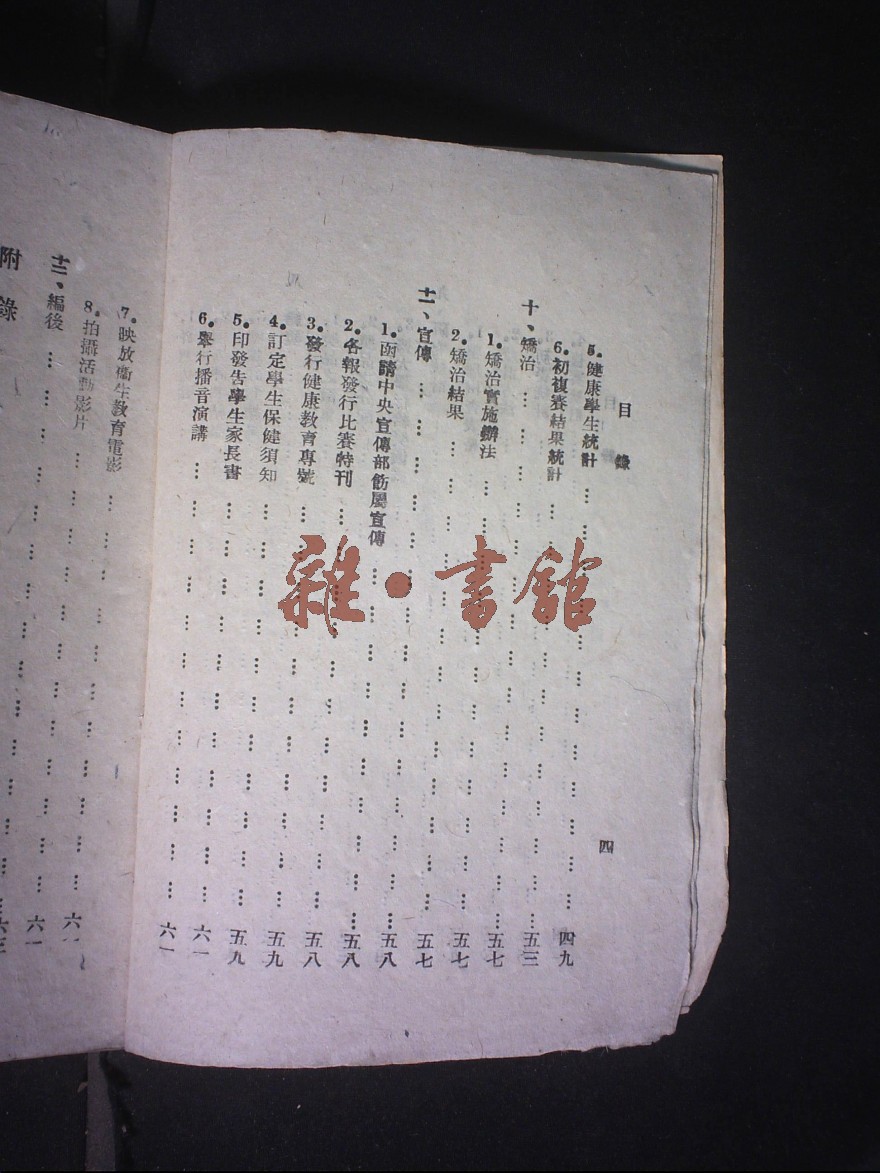 目錄
四
5.健康學生統計……………………………四九
6.初複賽結果統計……………………………五三
十、矯治……………………………五七
1.矯治實施辦法……………………………五七
2.矯治結果……………………………五七
十一、宣傳……………………………五八
1.函請中央宣傳部飭屬宣傳……………………………五八
2.各報發行比賽特刊……………………………五八
3.發行健康教育專號……………………………五九
4.訂定學生保健須知……………………………五九
5.印發告學生家長書……………………………六一
6.舉行播音演講……………………………六一
7.映放衞生教育電影……………………………六一
8.拍攝活動影片……………………………六一
十二、編後……………………………六三
附錄
雜·書館